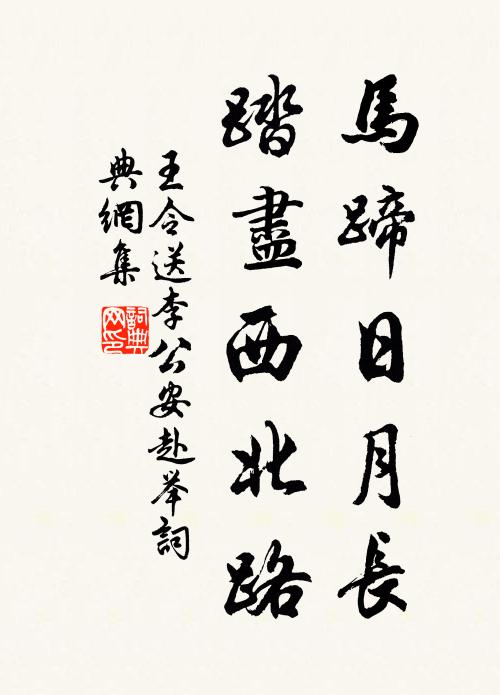 馬蹄日月長
踏盡西北路
王令送李公安赴举詞
典網集
詞典
网印